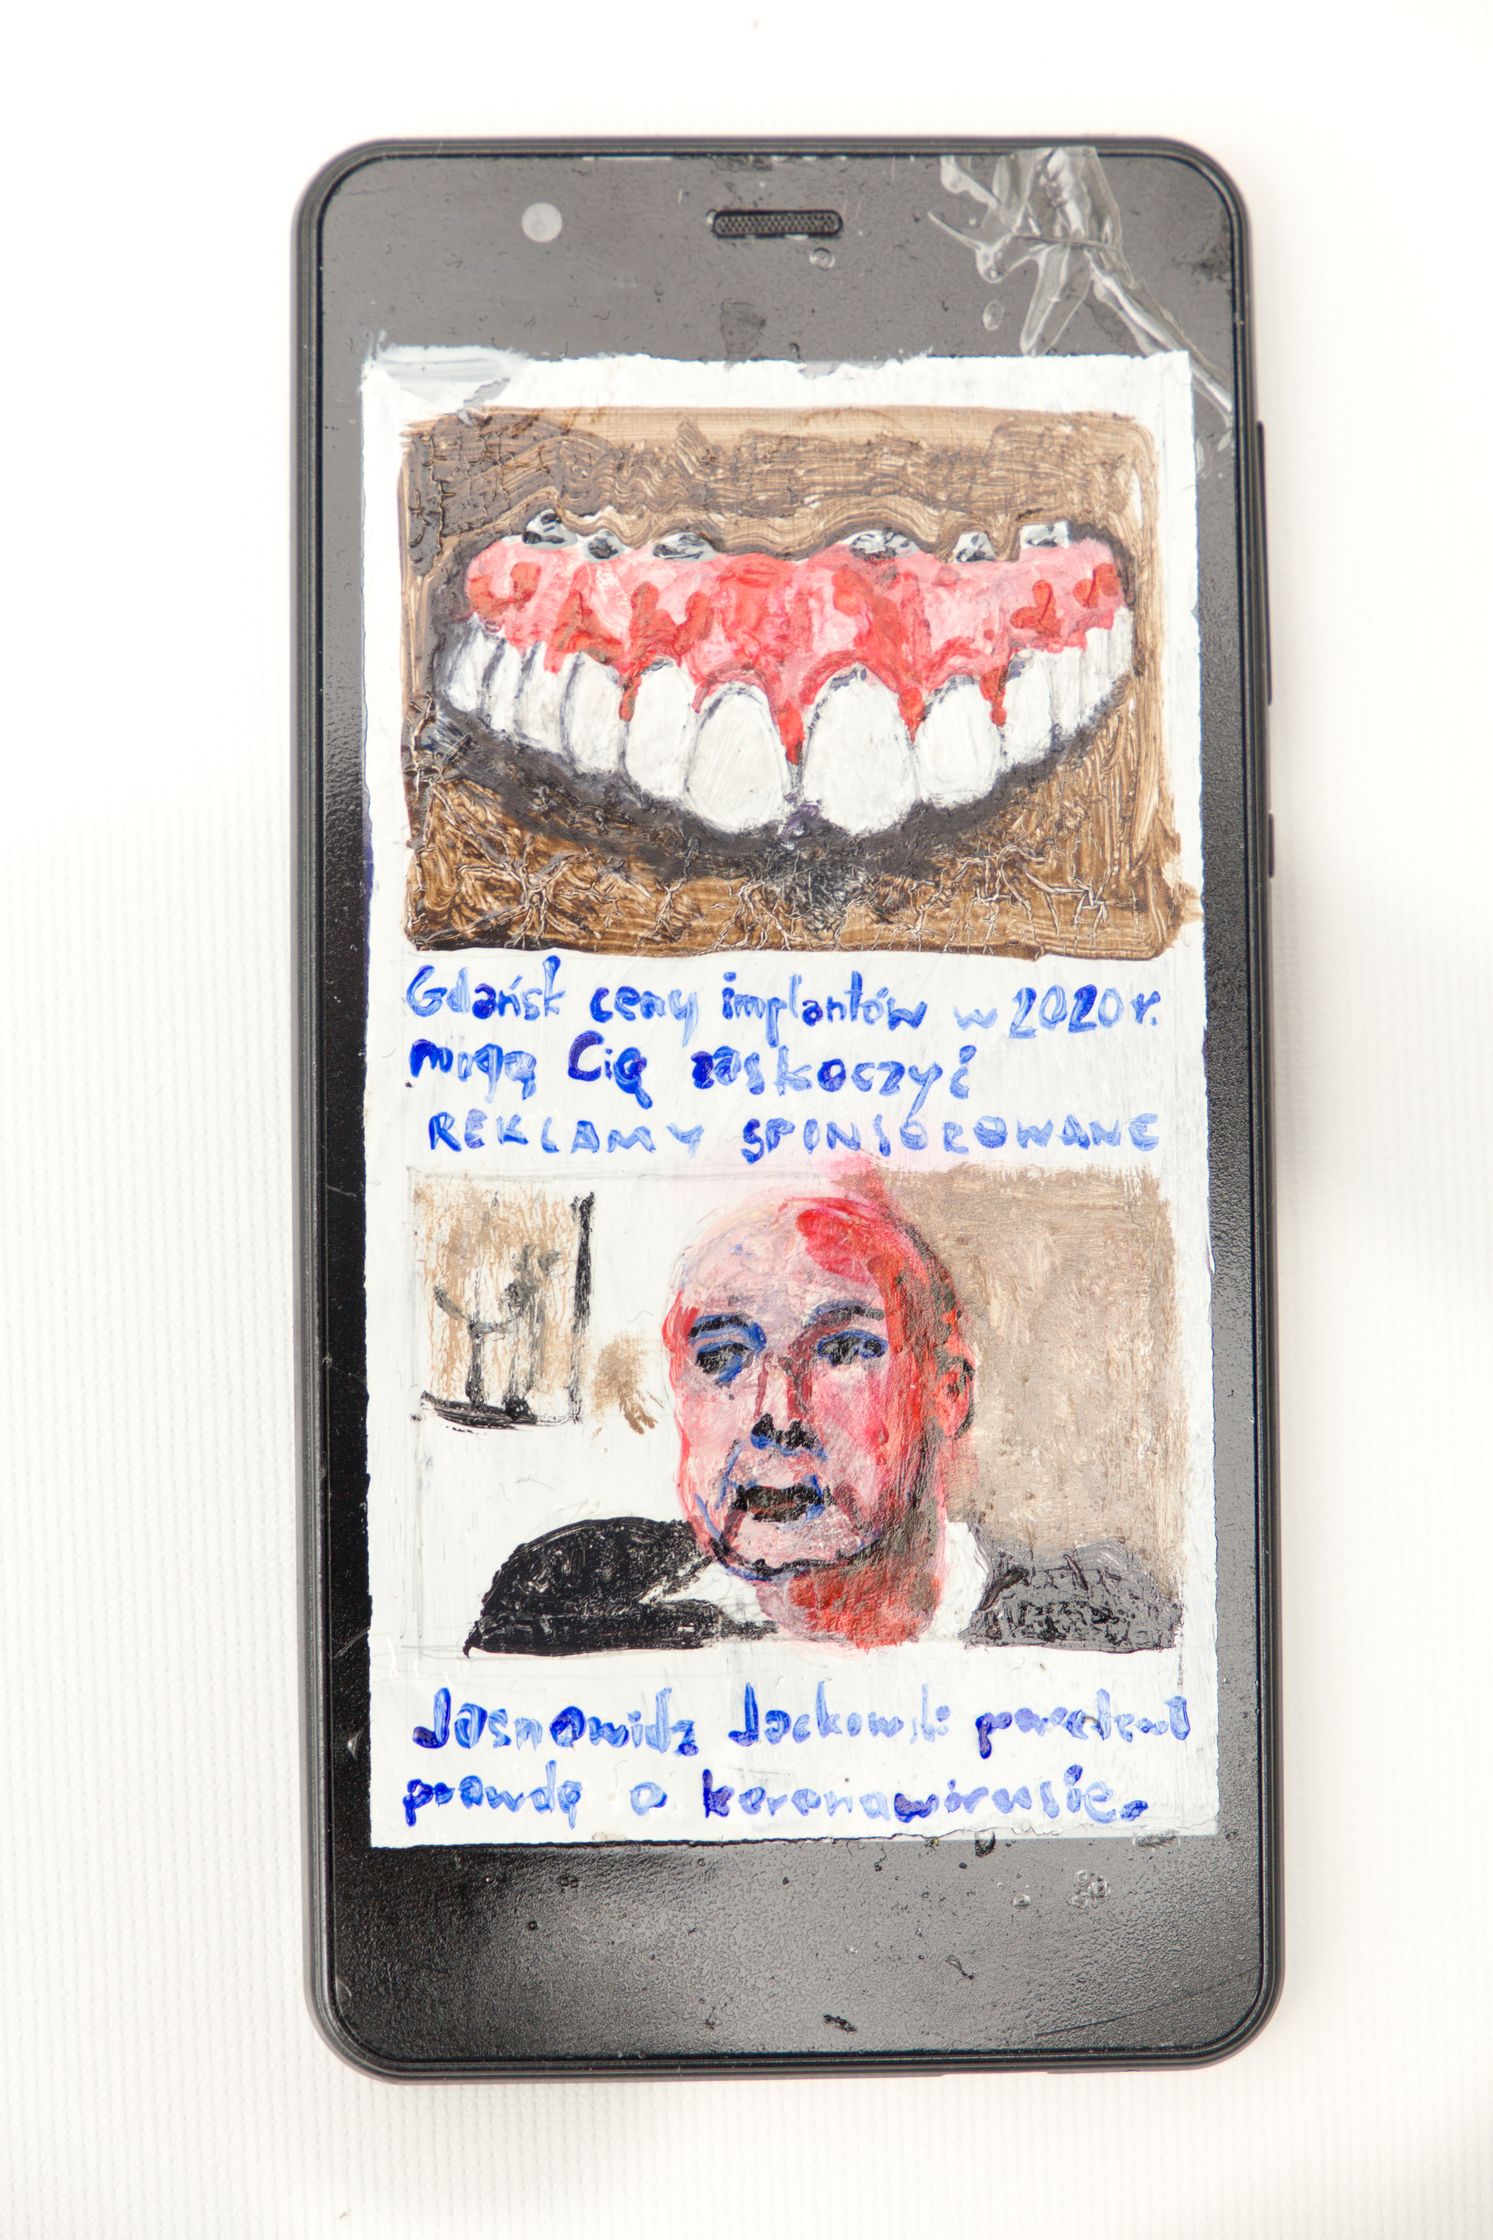 Gdańsk ceny implantów w 2020 r.
mogą Cię zaskoczyć
REKLAMY SPONSOROWANE
Jasnowidz Jackowski powiedział
prawdę o koronawirusie.